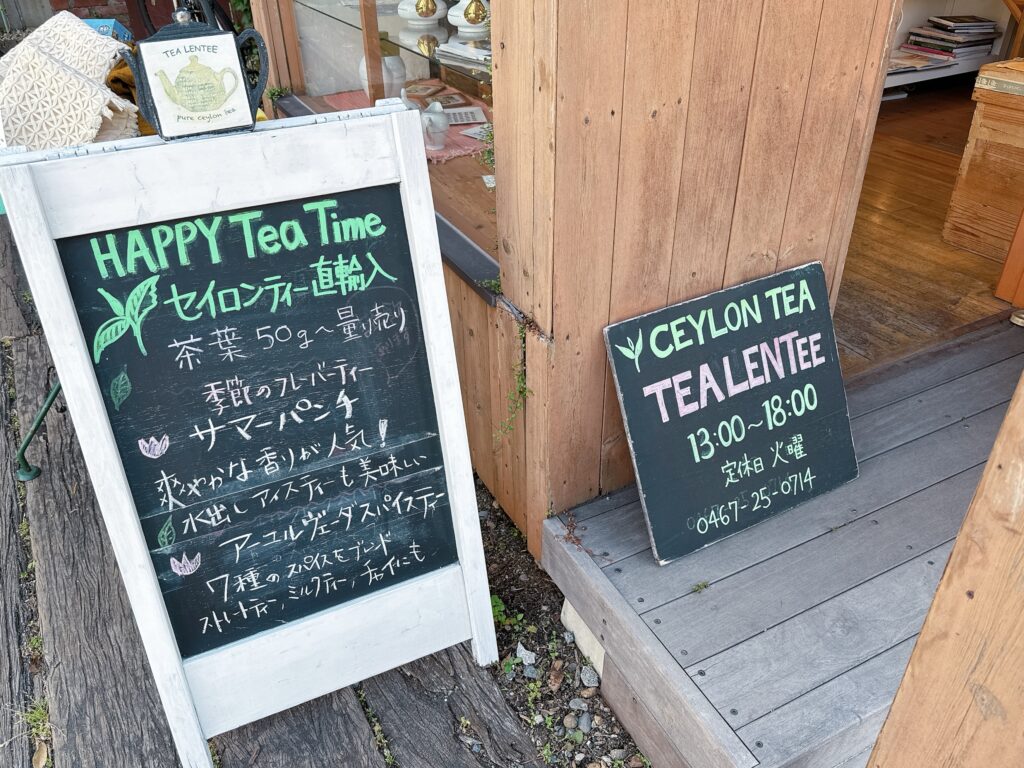 TEA LENTEE
Pure Ceylon tea
HAPPY Tea Time
セイロンティー直輸入
茶葉 50g〜量り売り
季節のフレーバーティー
サマーパンチ
爽やかな香りが人気!
水出しアイスティーも美味しい
アーユルヴェーダスパイスティー
7種のスパイスをブレンド
ストレートティー、ミルクティー、チャイにも
CEYLON TEA
TEALENTEE
13:00〜18:00
定休日 火曜
0467-25-0714